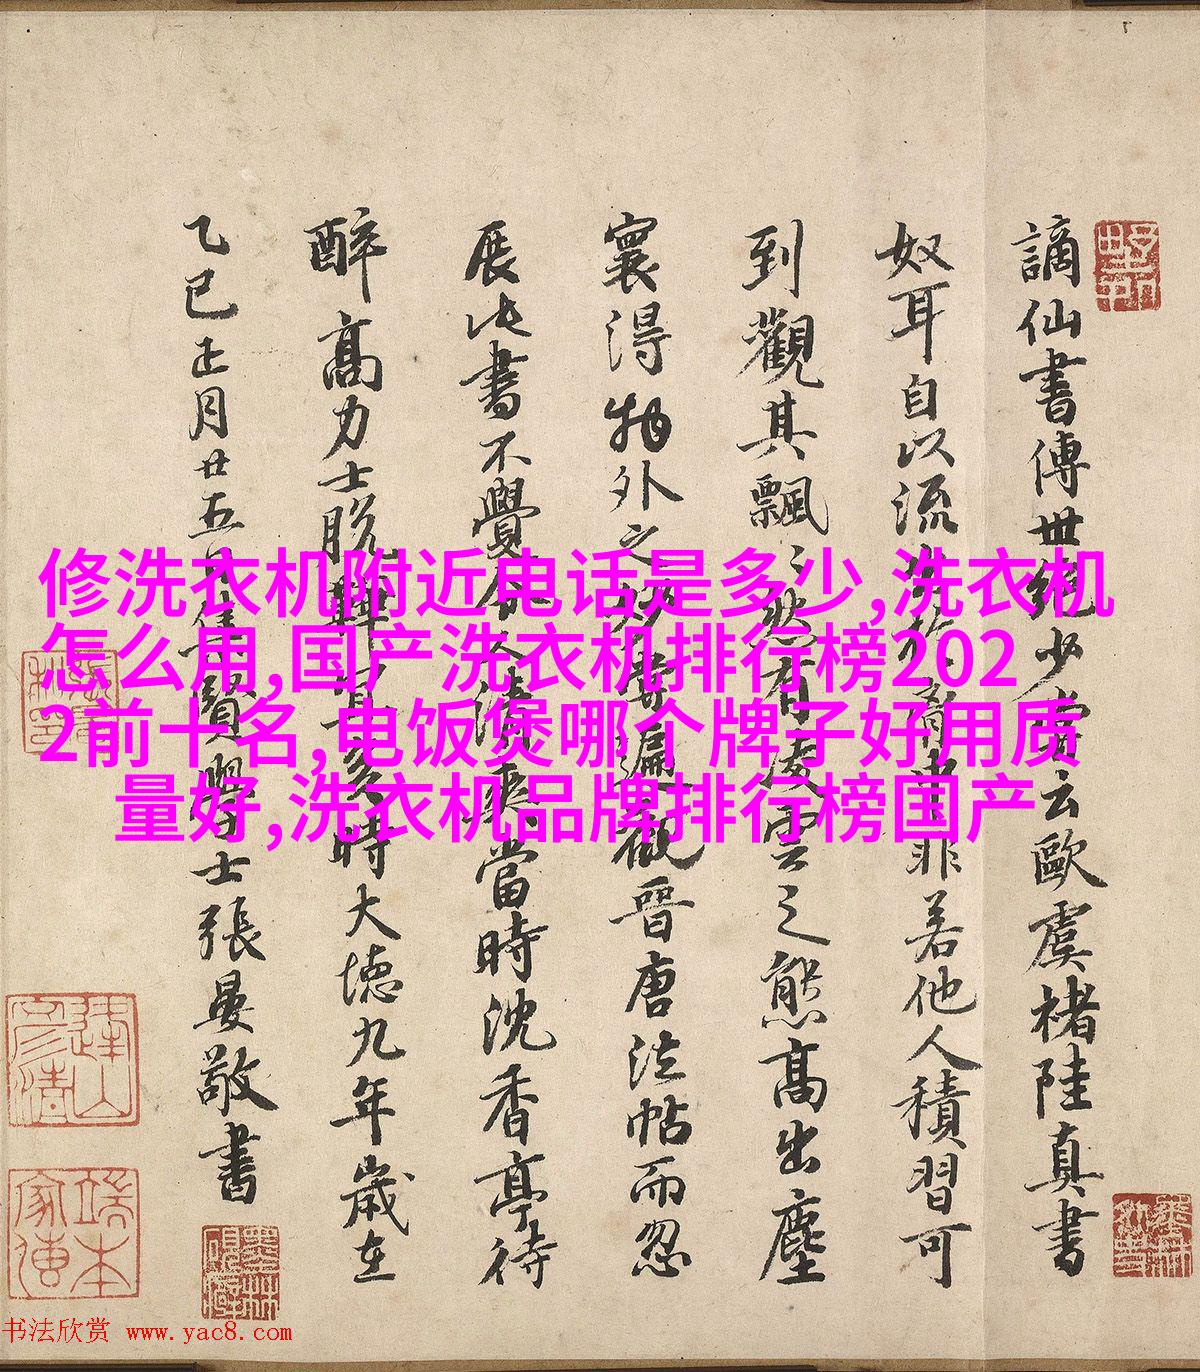 謫仙書傳世絕少嘗云歐虞褚陸真書
奴耳自以流出於胷中非若他人積習可
到觀其飄〻然有凌雲之態高出塵
寰得物外之妙嘗遍觀晉唐法帖而忽
展此書不覺令人清爽當時沈香亭待
醉高力士脫鞾宜矣時大德九年歲在
乙巳正月廿五日集賢學士張晏敬書
修洗衣机附近电话是多少,洗衣机
怎么用,国产洗衣机排行榜202
2前十名,电饭煲哪个牌子好用质
量好,洗衣机品牌排行榜国产
端本
家傳
书法欣赏 www.yac8.com